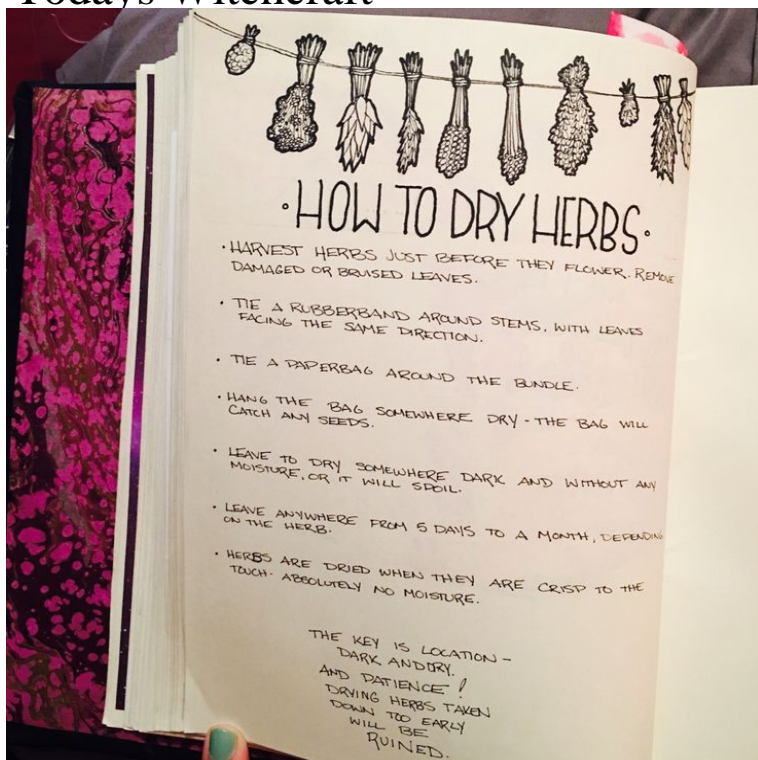 Todays Witchcraft
·HOW TO DRY HERBS·
· HARVEST HERBS JUST BEFORE THEY FLOWER. REMOVE
DAMAGED OR BRUISED LEAVES.
· TIE A RUBBERBAND AROUND STEMS, WITH LEAVES
FACING THE SAME DIRECTION.
· TIE A PAPERBAG AROUND THE BUNDLE.
· HANG THE BAG SOMEWHERE DRY - THE BAG WILL
CATCH ANY SEEDS.
· LEAVE TO DRY SOMEWHERE DARK AND WITHOUT ANY
MOISTURE, OR IT WILL SPOIL.
· LEAVE ANYWHERE FROM 5 DAYS TO A MONTH, DEPENDING
ON THE HERB.
· HERBS ARE DRIED WHEN THEY ARE CRISP TO THE
TOUCH - ABSOLUTELY NO MOISTURE.
THE KEY IS LOCATION -
DARK AND DRY.
AND PATIENCE!
DRYING HERBS TAKEN
DOWN TOO EARLY
WILL BE
RUINED.